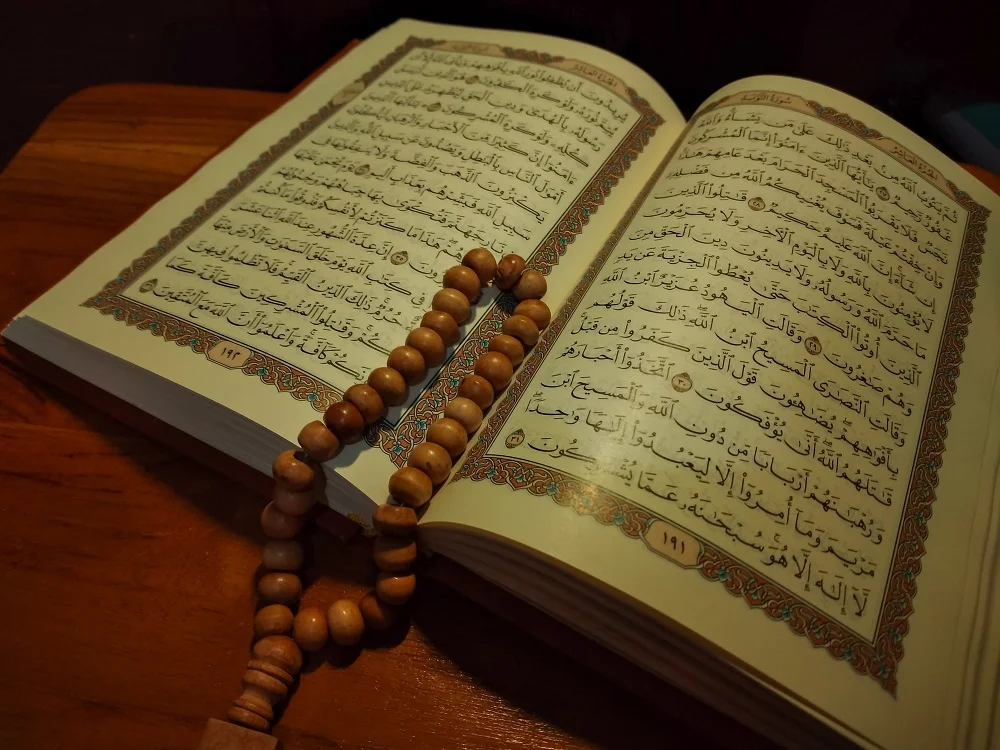 الجزء العاشر سورة التوبة
ثُمَّ يَتُوبُ اللَّهُ مِنْ بَعْدِ ذَٰلِكَ عَلَىٰ مَن يَشَاءُ وَاللَّهُ
غَفُورٌ رَّحِيمٌ ٢٧ يَا أَيُّهَا الَّذِينَ ءَامَنُوا إِنَّمَا الْمُشْرِكُونَ
نَجَسٌ فَلَا يَقْرَبُوا الْمَسْجِدَ الْحَرَامَ بَعْدَ عَامِهِمْ هَٰذَا
وَإِنْ خِفْتُمْ عَيْلَةً فَسَوْفَ يُغْنِيكُمُ اللَّهُ مِن فَضْلِهِ
إِن شَاءَ إِنَّ اللَّهَ عَلِيمٌ حَكِيمٌ ٢٨ قَٰتِلُوا الَّذِينَ
لَا يُؤْمِنُونَ بِاللَّهِ وَلَا بِالْيَوْمِ الْآخِرِ وَلَا يُحَرِّمُونَ
مَا حَرَّمَ اللَّهُ وَرَسُولُهُ وَلَا يَدِينُونَ دِينَ الْحَقِّ مِنَ
الَّذِينَ أُوتُوا الْكِتَٰبَ حَتَّىٰ يُعْطُوا الْجِزْيَةَ عَن يَدٍ
وَهُمْ صَٰغِرُونَ ٢٩ وَقَالَتِ الْيَهُودُ عُزَيْرٌ ابْنُ اللَّهِ
وَقَالَتِ النَّصَٰرَى الْمَسِيحُ ابْنُ اللَّهِ ذَٰلِكَ قَوْلُهُم
بِأَفْوَٰهِهِمْ يُضَٰهِئُونَ قَوْلَ الَّذِينَ كَفَرُوا مِن قَبْلُ
قَٰتَلَهُمُ اللَّهُ أَنَّىٰ يُؤْفَكُونَ ٣٠ اتَّخَذُوا أَحْبَارَهُمْ
وَرُهْبَٰنَهُمْ أَرْبَابًا مِّن دُونِ اللَّهِ وَالْمَسِيحَ ابْنَ
مَرْيَمَ وَمَا أُمِرُوا إِلَّا لِيَعْبُدُوا إِلَٰهًا وَٰحِدًا
لَّا إِلَٰهَ إِلَّا هُوَ سُبْحَٰنَهُ عَمَّا يُشْرِكُونَ ٣١
١٩١
الجزء العاشر سورة التوبة
يُرِيدُونَ أَن يُطْفِئُوا نُورَ اللَّهِ بِأَفْوَٰهِهِمْ وَيَأْبَى اللَّهُ إِلَّا
أَن يُتِمَّ نُورَهُ وَلَوْ كَرِهَ الْكَٰفِرُونَ ٣٢ هُوَ الَّذِي أَرْسَلَ
رَسُولَهُ بِالْهُدَىٰ وَدِينِ الْحَقِّ لِيُظْهِرَهُ عَلَى الدِّينِ
كُلِّهِ وَلَوْ كَرِهَ الْمُشْرِكُونَ ٣٣ يَا أَيُّهَا الَّذِينَ
ءَامَنُوا إِنَّ كَثِيرًا مِّنَ الْأَحْبَارِ وَالرُّهْبَانِ لَيَأْكُلُونَ
أَمْوَٰلَ النَّاسِ بِالْبَٰطِلِ وَيَصُدُّونَ عَن سَبِيلِ اللَّهِ وَالَّذِينَ
يَكْنِزُونَ الذَّهَبَ وَالْفِضَّةَ وَلَا يُنفِقُونَهَا فِي
سَبِيلِ اللَّهِ فَبَشِّرْهُم بِعَذَابٍ أَلِيمٍ ٣٤ يَوْمَ يُحْمَىٰ عَلَيْهَا
نَارِ جَهَنَّمَ فَتُكْوَىٰ بِهَا جِبَاهُهُمْ وَجُنُوبُهُمْ
هُمْ هَٰذَا مَا كَنَزْتُمْ لِأَنفُسِكُمْ فَذُوقُوا مَا كُنتُمْ
٣٥ إِنَّ عِدَّةَ الشُّهُورِ عِندَ اللَّهِ اثْنَا عَشَرَ
فِي كِتَٰبِ اللَّهِ يَوْمَ خَلَقَ السَّمَٰوَٰتِ وَالْأَرْضَ مِنْهَا
حُرُمٌ ذَٰلِكَ الدِّينُ الْقَيِّمُ فَلَا تَظْلِمُوا فِيهِنَّ
وَقَٰتِلُوا الْمُشْرِكِينَ كَافَّةً كَمَا
كُمْ كَافَّةً وَاعْلَمُوا أَنَّ اللَّهَ مَعَ الْمُتَّقِينَ ٣٦
١٩٢